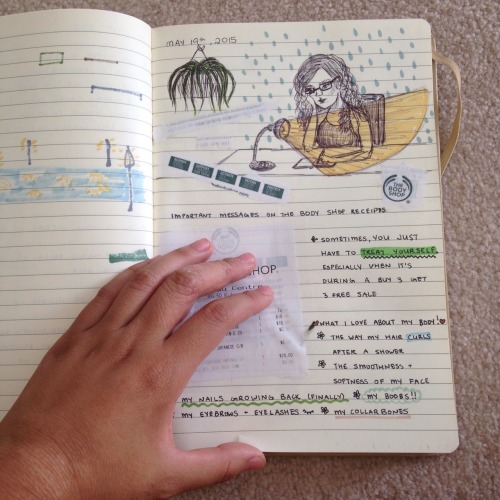 MAY 19th, 2015
THE BODY SHOP
IMPORTANT MESSAGES ON THE BODY SHOP RECEIPTS
SHOP.
← SOMETIMES, YOU JUST
HAVE TO TREAT YOURSELF.
ESPECIALLY WHEN IT'S
DURING A BUY 3 GET
3 FREE SALE
WHAT I LOVE ABOUT MY BODY!
THE WAY MY HAIR CURLS
AFTER A SHOWER
THE SMOOTHNESS +
SOFTNESS OF MY FACE
MY NAILS GROWING BACK (FINALLY)
MY BOOBS!!
MY EYEBROWS + EYELASHES
MY COLLARBONES